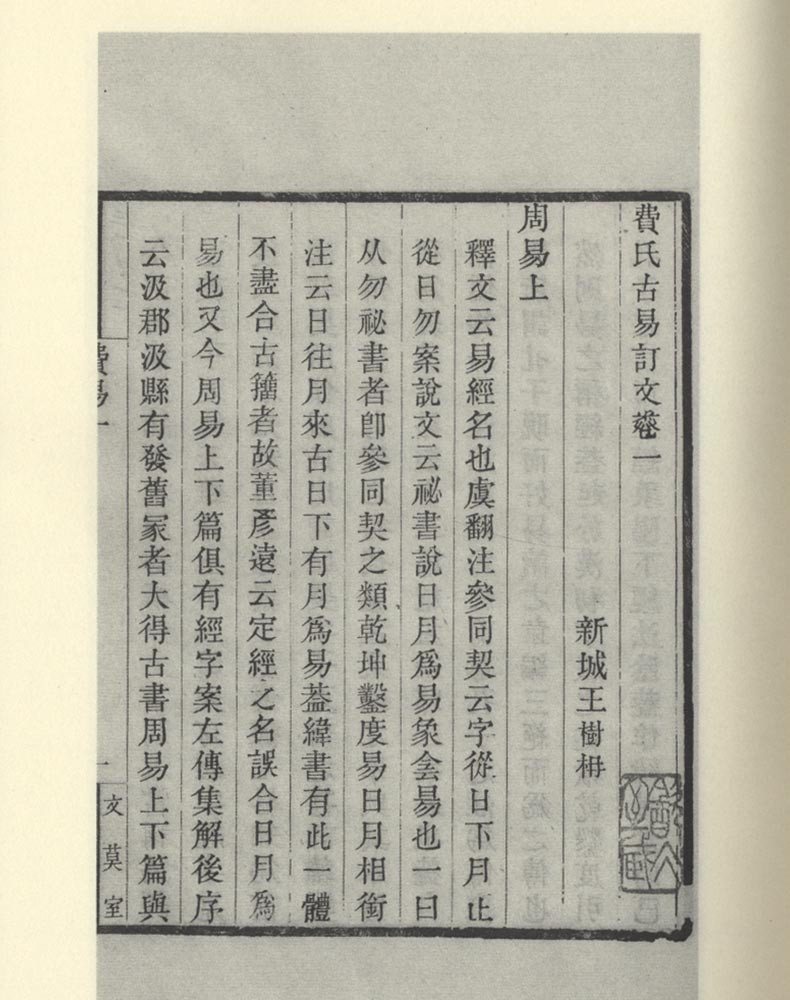 費氏古易訂文卷一
新城王樹枏
周易上
釋文云易經名也虞翻注參同契云字從日下月止
從日勿案說文云祕書說日月爲易象侌昜也一曰
从勿祕書者卽參同契之類乾坤鑿度易日月相銜
注云日往月來古日下有月爲易葢緯書有此一體
不盡合古籒者故董彥遠云定經之名誤合日月爲
易也又今周易上下篇俱有經字案左傳集解後序
云汲郡汲縣有發舊冢者大得古書周易上下篇與
費易一
一
文莫室